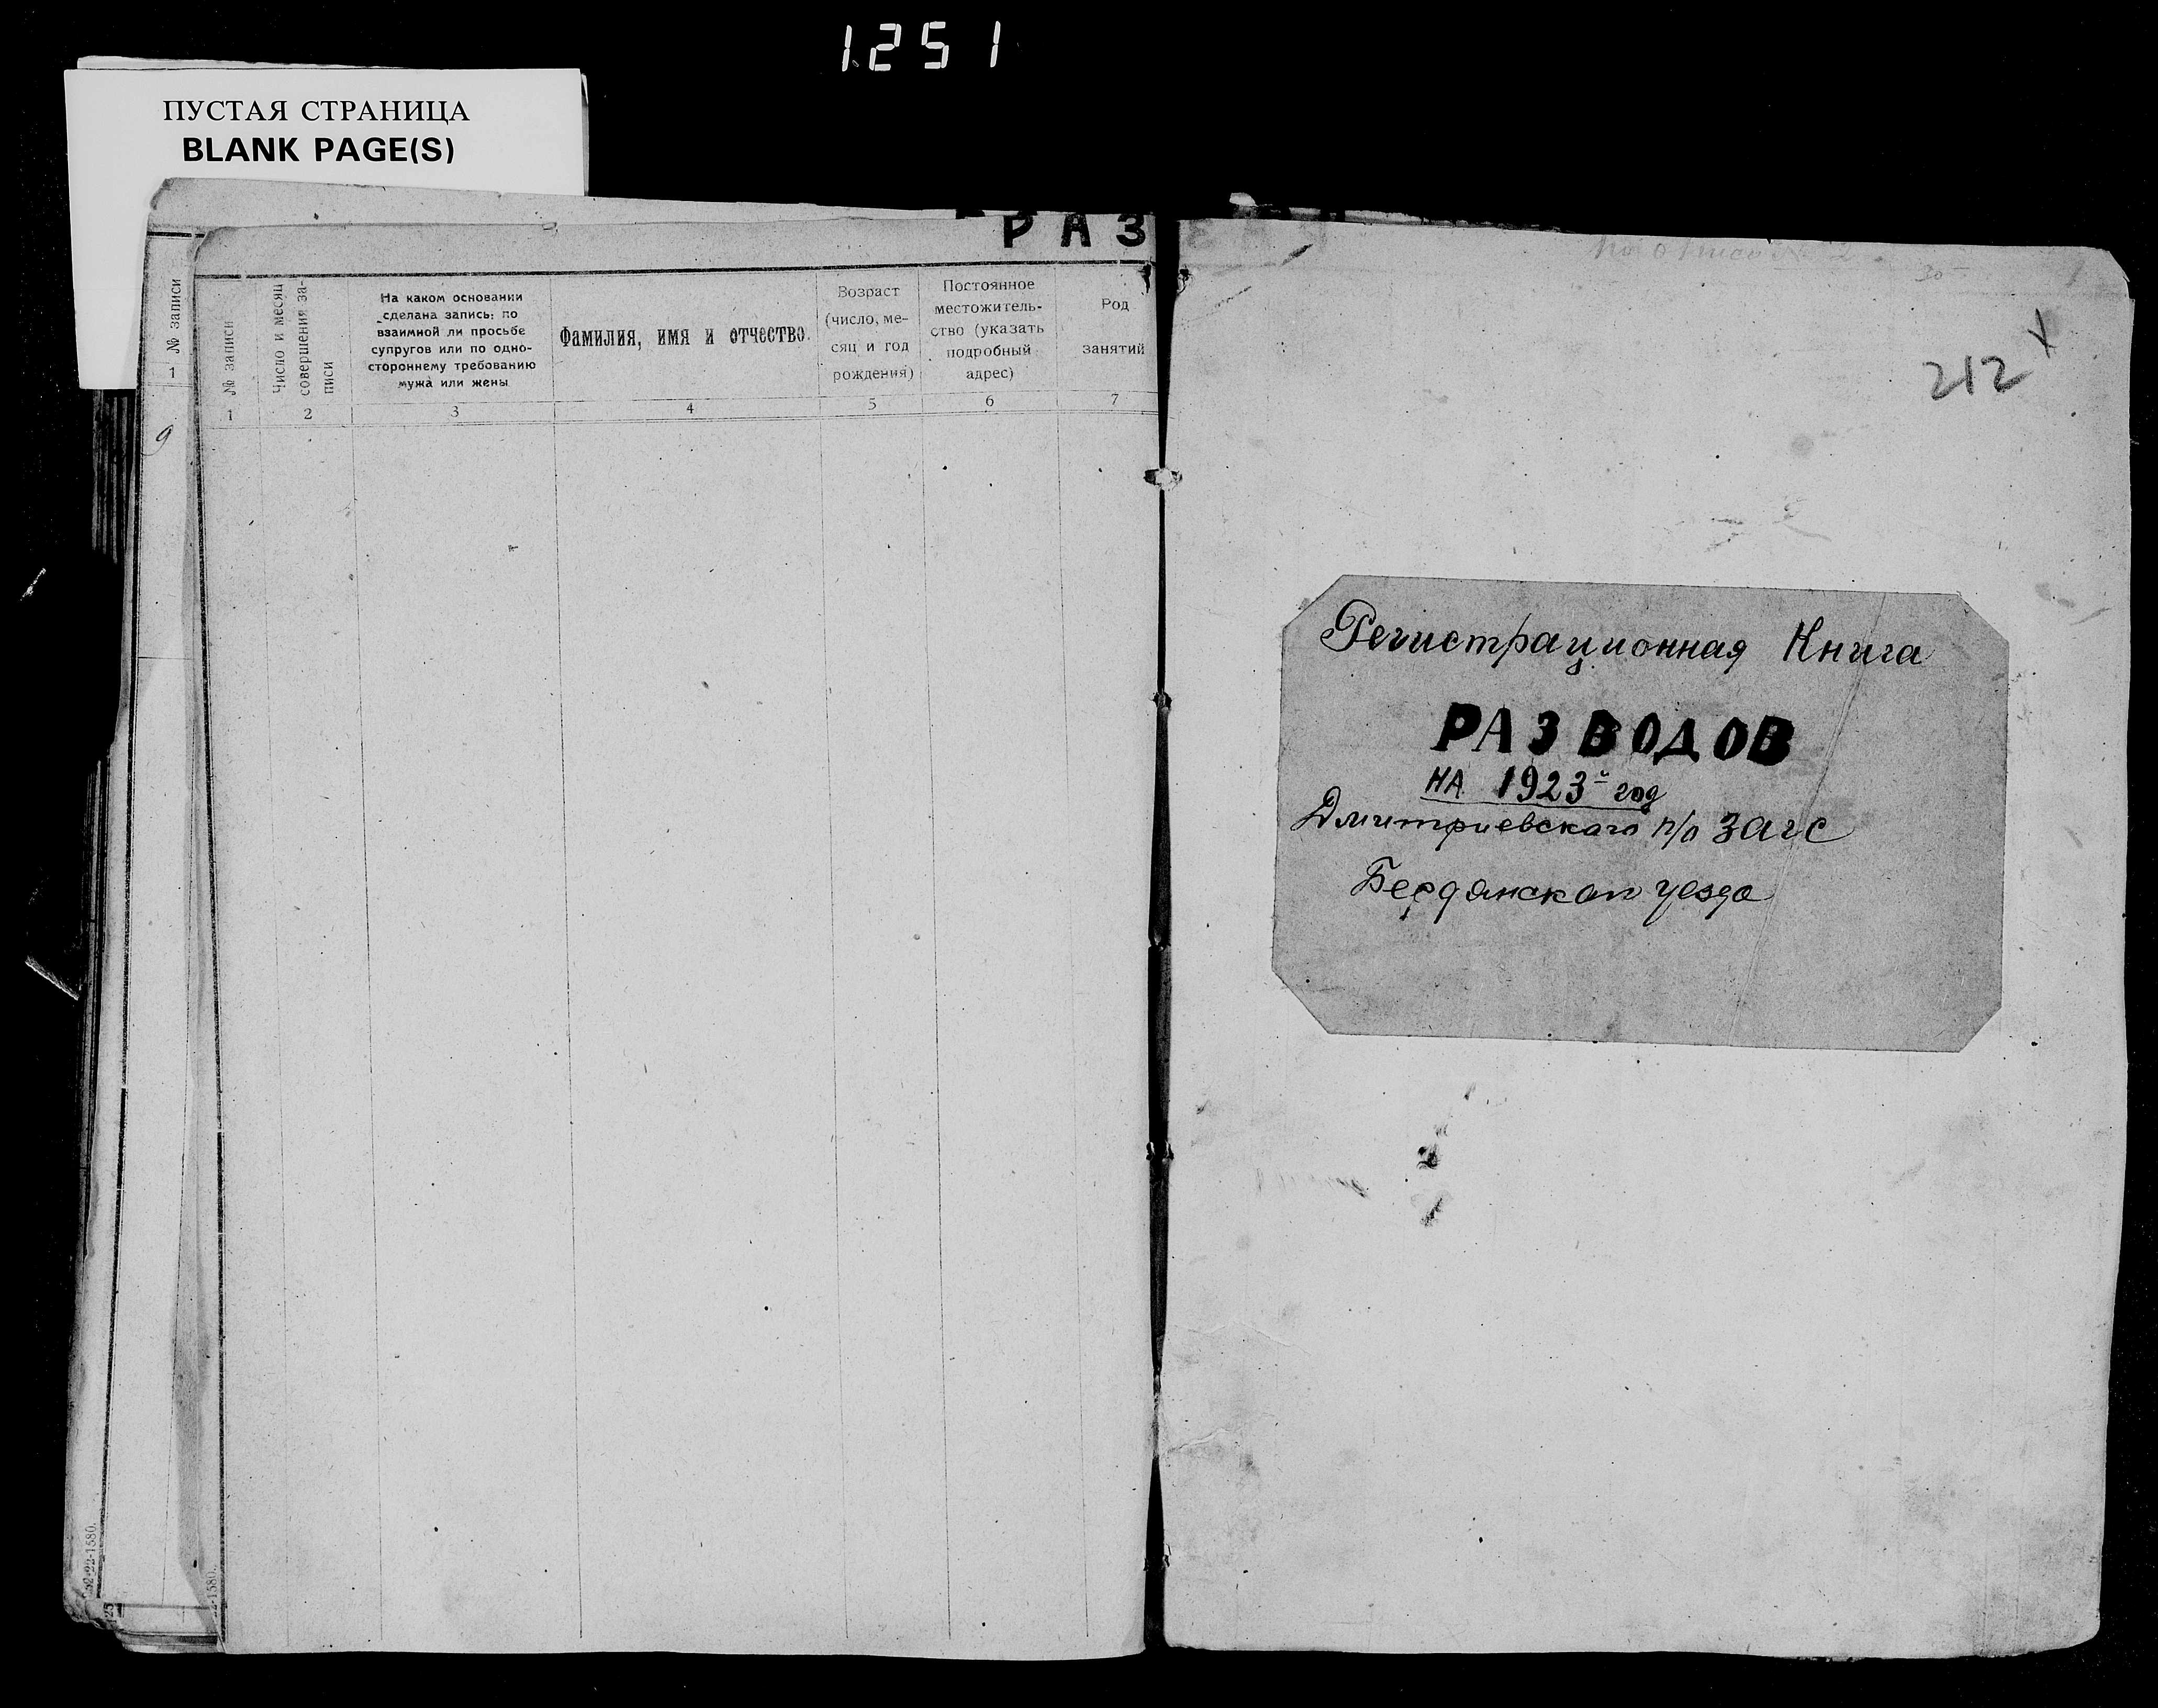 1251
ПУСТАЯ СТРАНИЦА
BLANK PAGE(S)
№ записи
1
9
РАЗ
№ записи
Число и месяц
совершения за-
писи
На каком основании
сделана запись: по
взаимной ли просьбе
супругов или по одно-
стороннему требованию
мужа или жены
Фамилия, имя и отчество.
Возраст
(число, ме-
сяц и год
рождения)
Постоянное
местожитель-
ство (указать
подробный
адрес)
Род
занятий
1 2 3 4 5 6 7
22-1580.
-1580.
30
212
Регистрационная Книга
РАЗВОДОВ
НА 1923й год
Дмитриевскаго п/о загс
Бердянскаго уезда